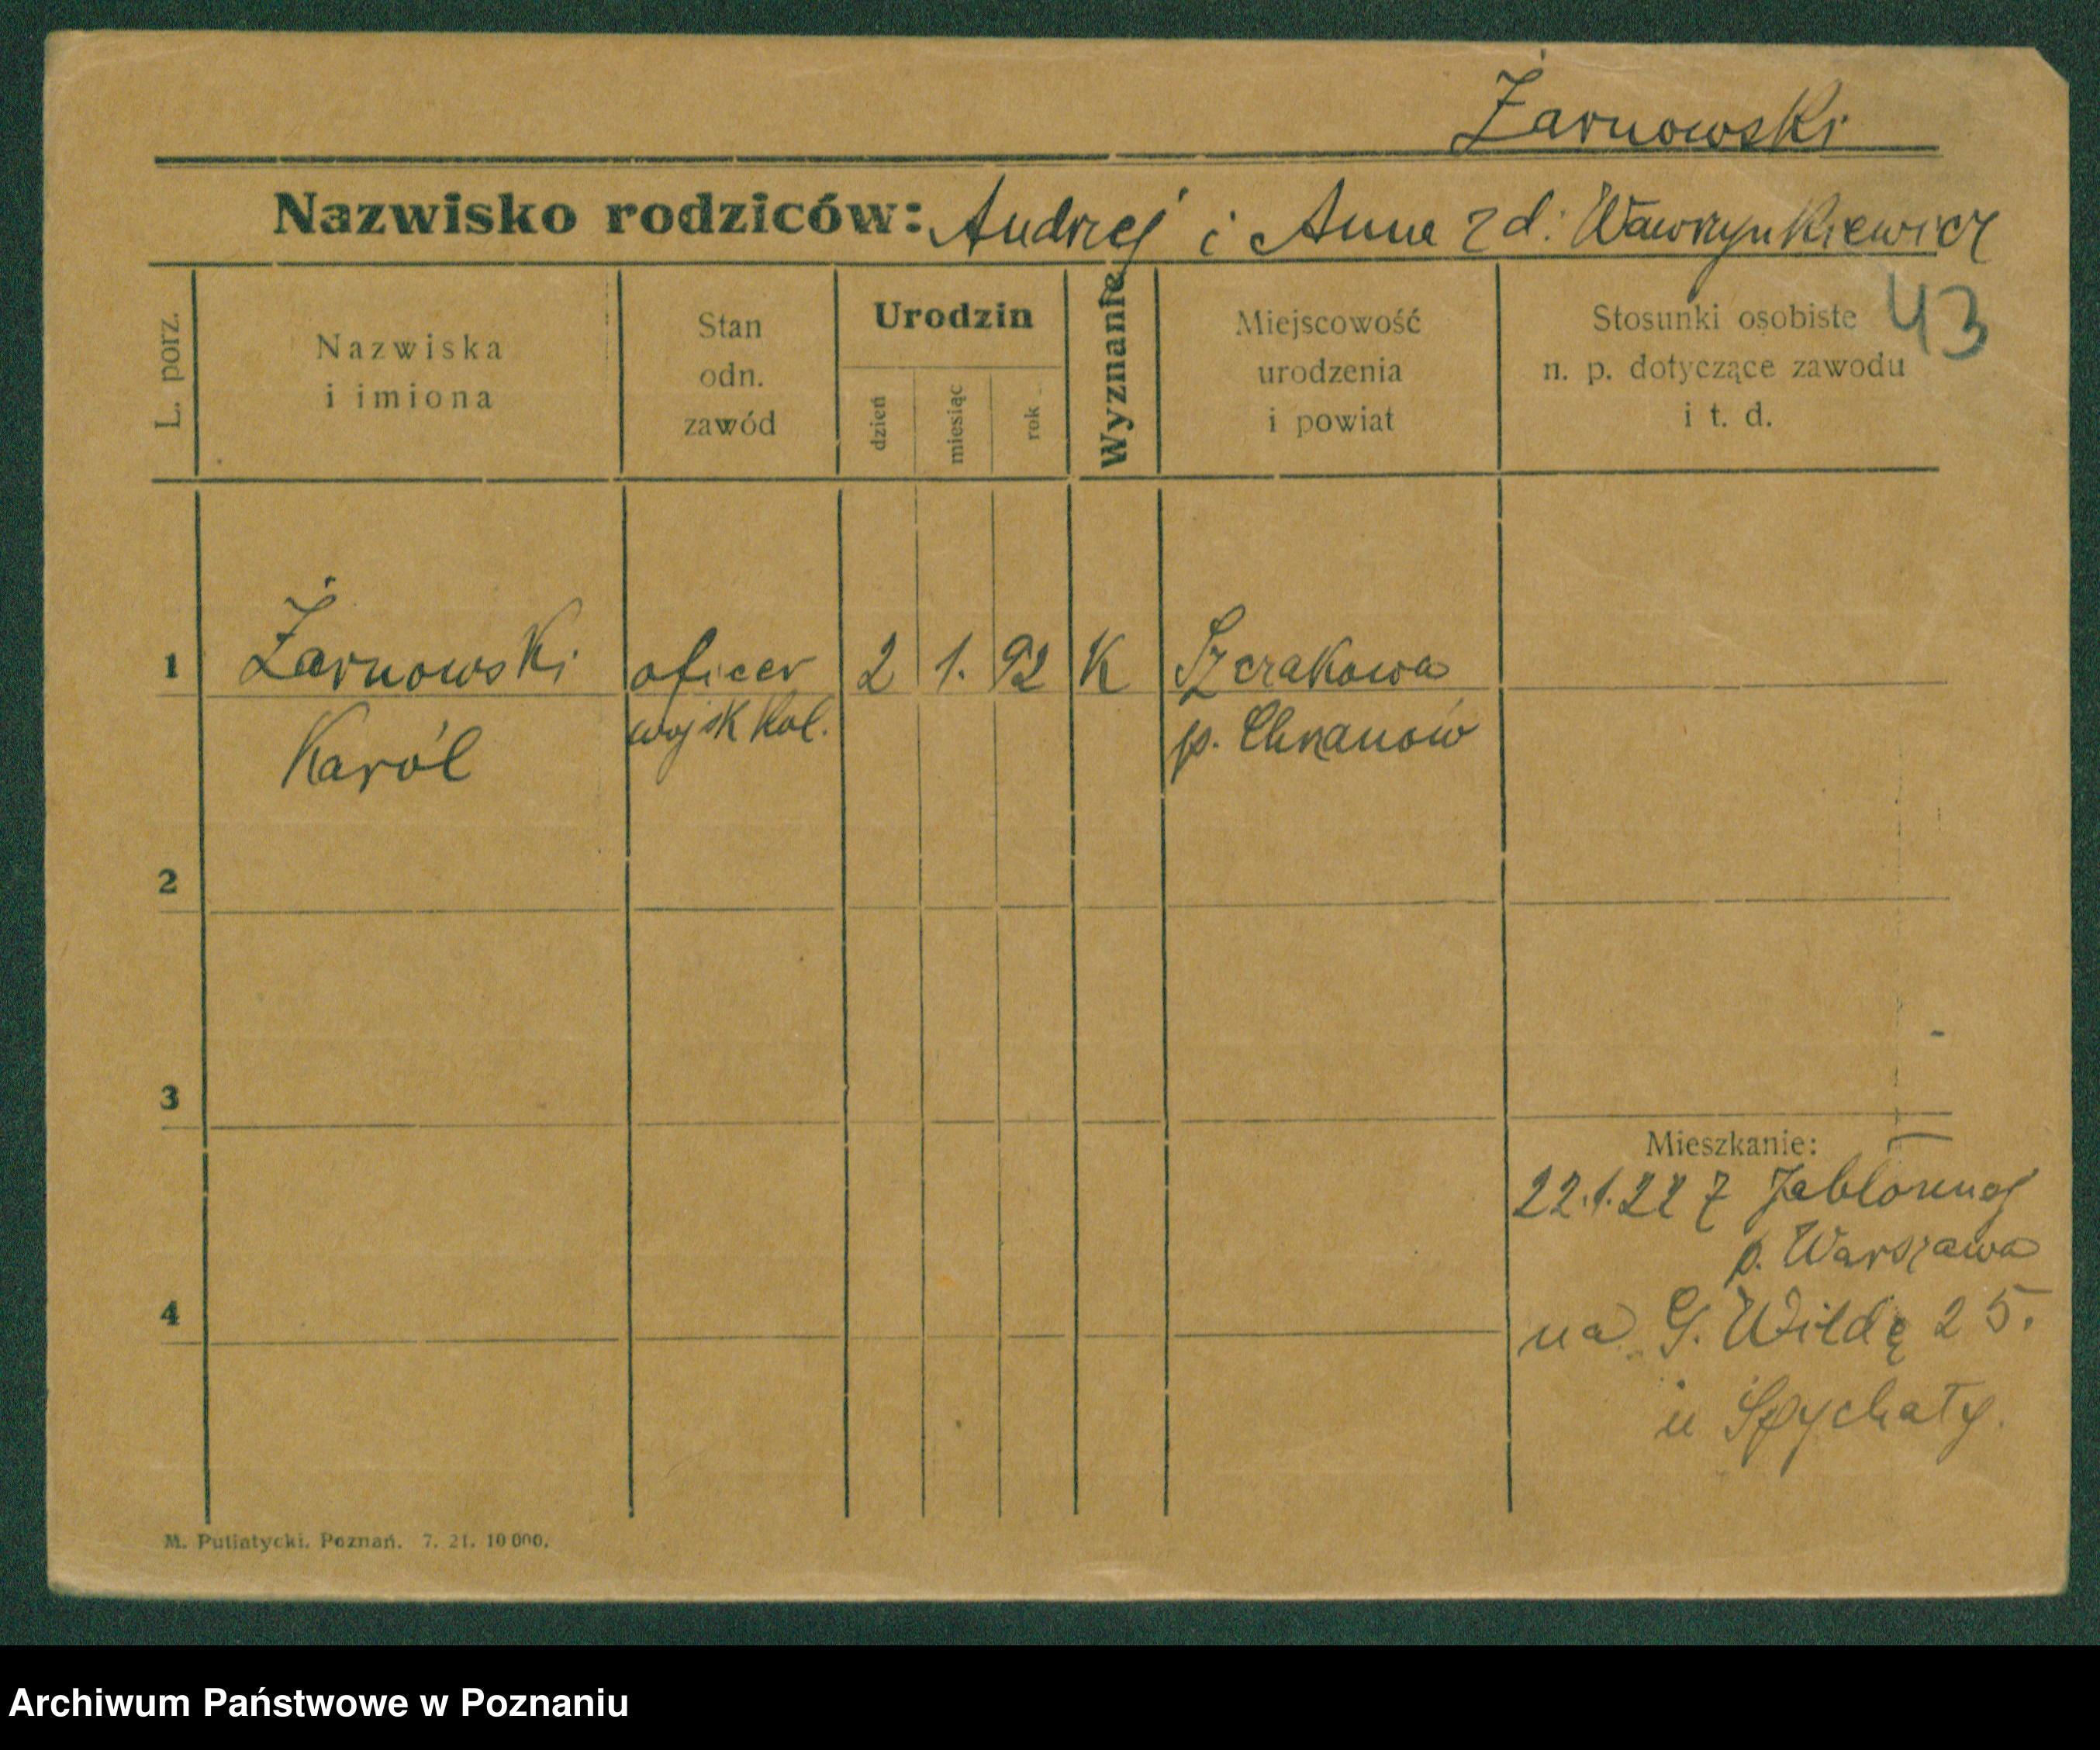 Żarnowski
Nazwisko rodziców: Andrzej i Anna z d. Wawrzynkiewicz
43
L. porz.
Nazwiska
i imiona
Stan
odn.
zawód
Urodzin
dzień
miesiąc
rok
Wyznanie
Miejscowość
urodzenia
i powiat
Stosunki osobiste
n. p. dotyczące zawodu
i t. d.
1 Żarnowski oficer 2 1. 92 K Szczakowa
Karól wojsk Kol. p. Chrzanów
2
3
Mieszkanie:
22.1.22 z Jabłonnej
p. Warszawa
4
na G. Wildę 25.
u Spychały.
M. Putiatycki. Poznań. 7. 21. 10 000.
Archiwum Państwowe w Poznaniu